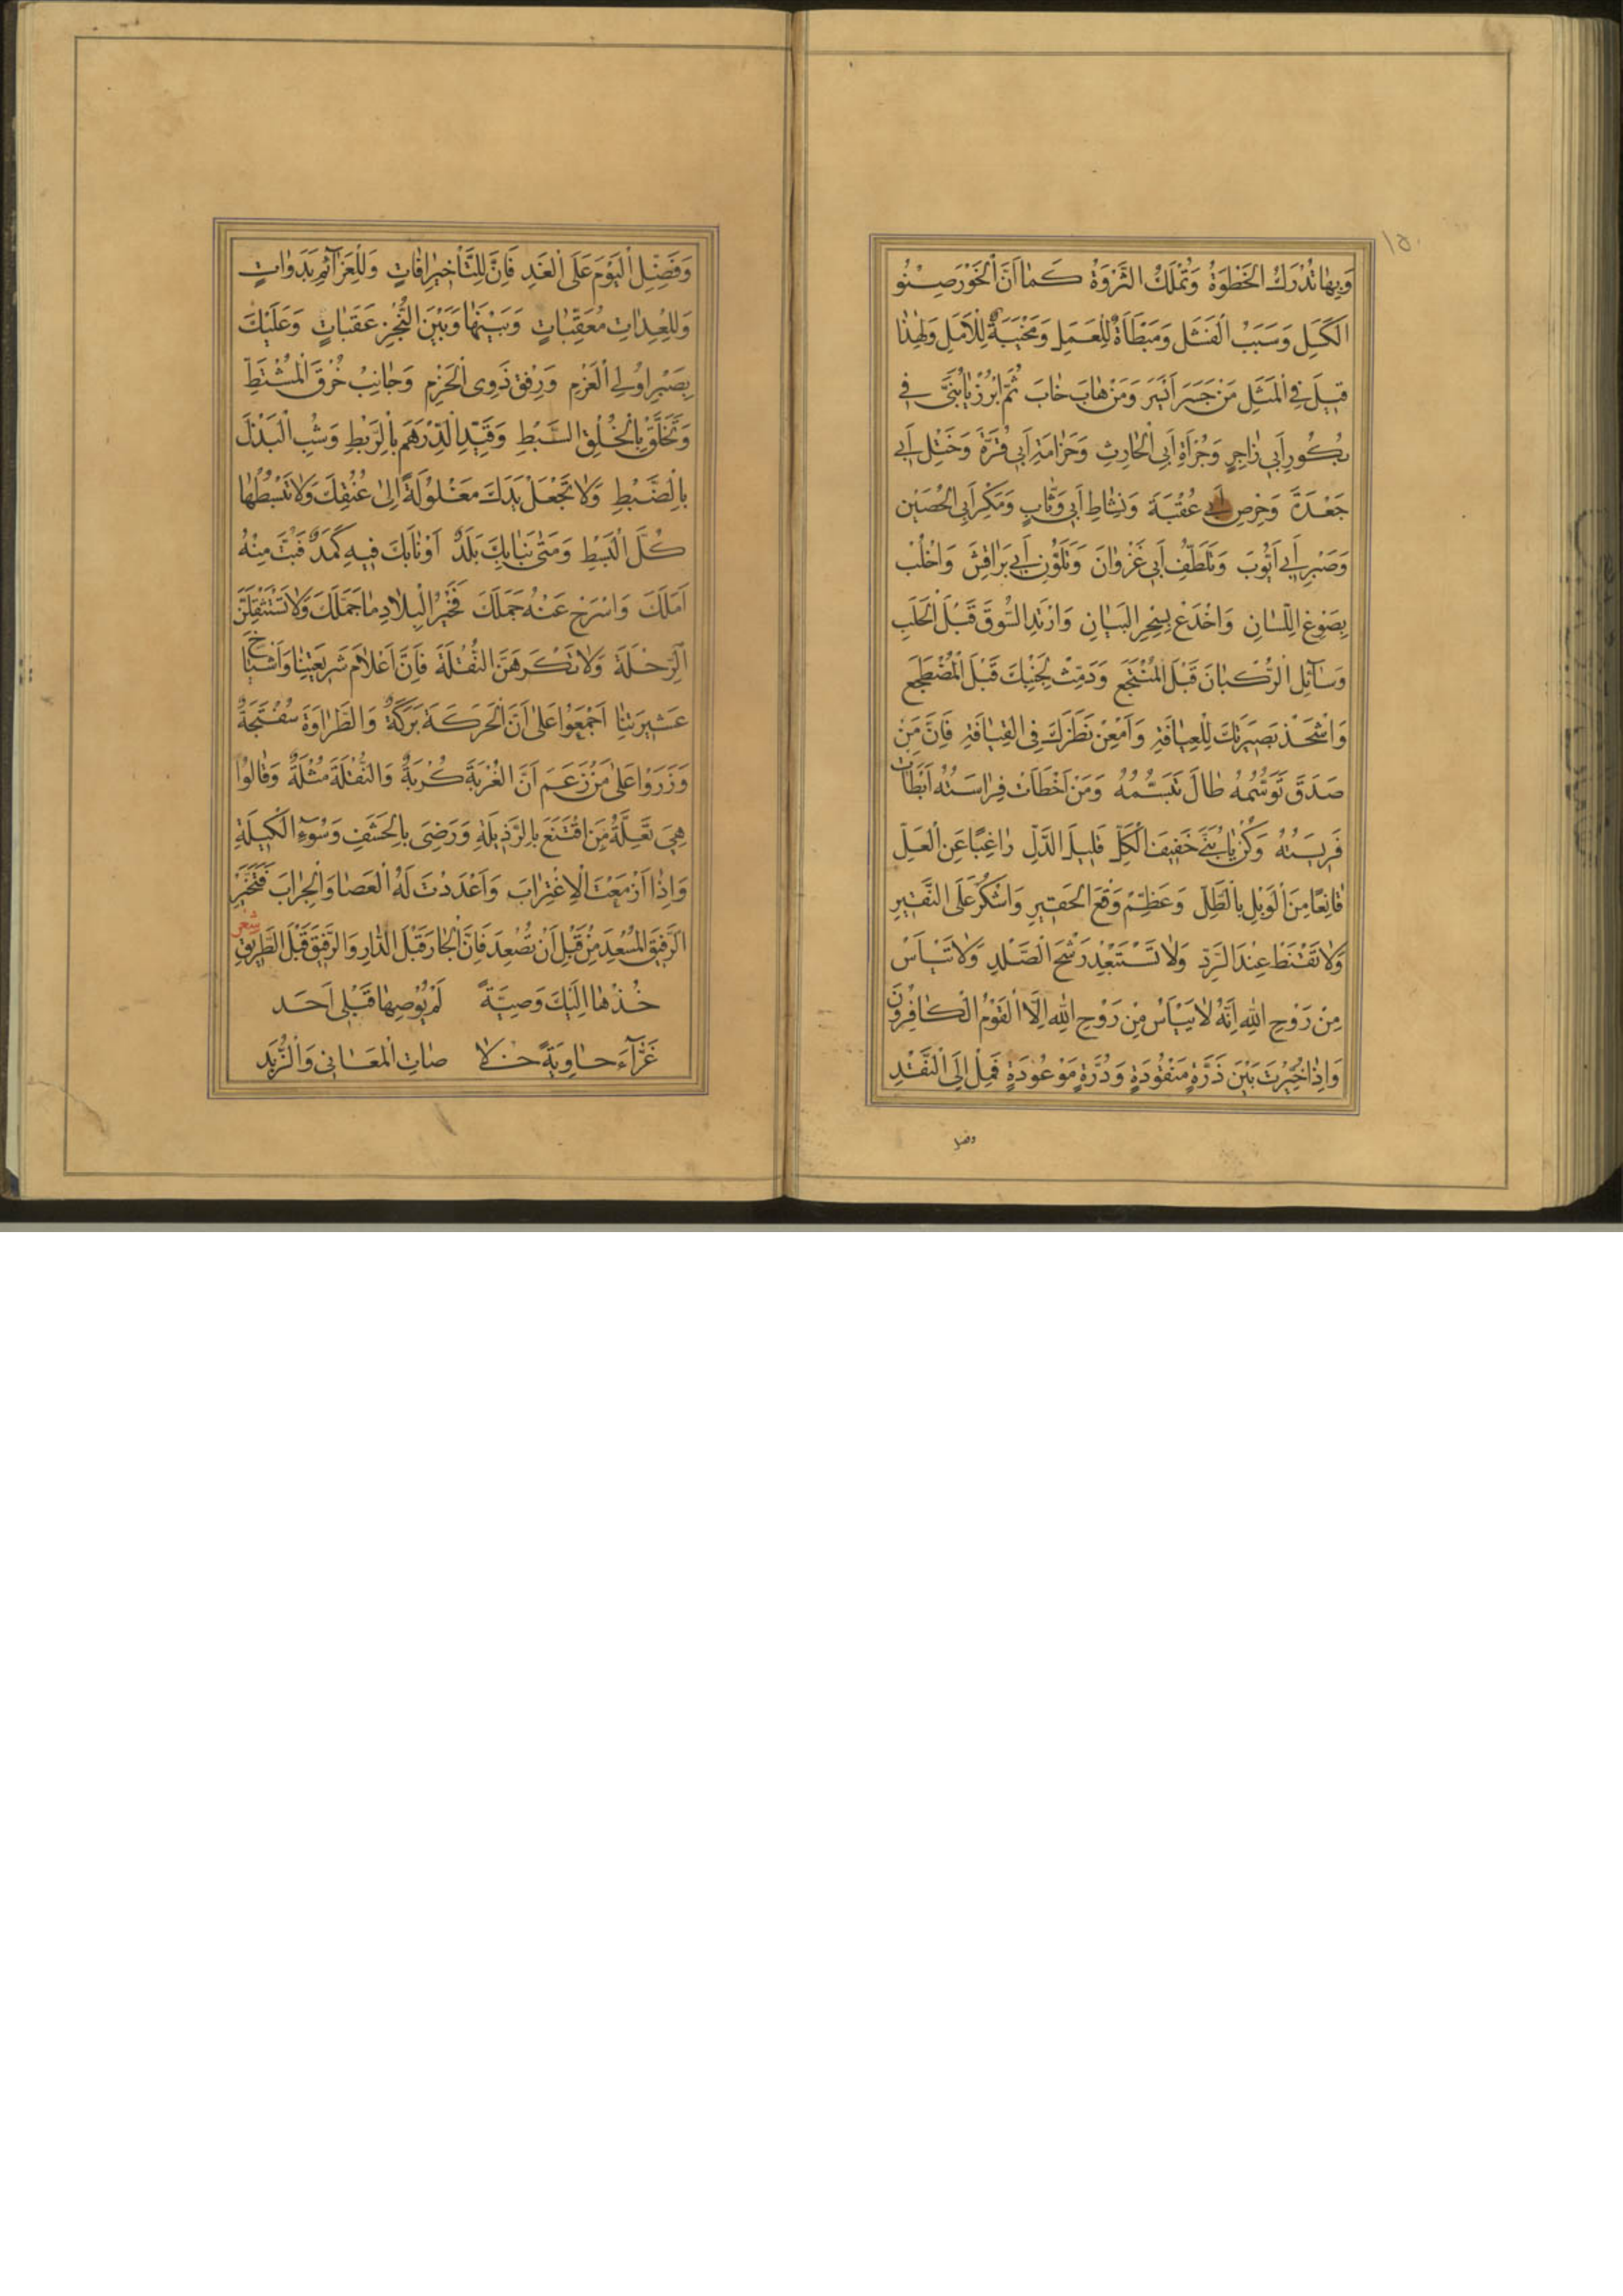 ١٥٠
وَبِهَا تُدْرَكُ الْخَطْوَةُ وَتُمْلَكُ الثَّرْوَةُ كَمَا اَنَّ الْخَوْرَ صِنْوُ
الْكَسَلِ وَسَبَبُ الْفَشَلِ وَمَبْطَأَةٌ لِلْعَمَلِ وَمَخْيَبَةٌ لِلْاَمَلِ وَلِهٰذَا
قِيلَ فِي الْمَثَلِ مَنْ جَسَرَ اَيْسَرَ وَمَنْ هَابَ خَابَ ثُمَّ ابْرُزْ يَا بُنَيَّ فِي
بُكُورِ اَبِي زَاجِرٍ وَجُرْاَةِ اَبِي الْحَارِثِ وَحَزَامَةِ اَبِي قُرَّةَ وَخَتْلِ اَبِي
جَعْدَةَ وَحِرْصِ اَبِي عُقْبَةَ وَنَشَاطِ اَبِي وَثَّابٍ وَمَكْرِ اَبِي الْحُصَيْنِ
وَصَبْرِ اَبِي اَيُّوبَ وَتَلَطُّفِ اَبِي غَزْوَانَ وَتَلَوُّنِ اَبِي بَرَاقِشَ وَاخْلُبْ
بِصَوْغِ اللِّسَانِ وَاخْدَعْ بِسِحْرِ الْبَيَانِ وَارْتَدِ السُّوقَ قَبْلَ الْجَلَبِ
وَسَآئِلِ الرُّكْبَانَ قَبْلَ الْمُنْتَجَعِ وَدَمِّثْ لِجَنْبِكَ قَبْلَ الْمُضْطَجَعِ
وَاشْحَذْ بَصِيرَتَكَ لِلْعِيَافَةِ وَاَمْعِنْ نَظَرَكَ فِي الْقِيَافَةِ فَاِنَّ مَنْ
صَدَقَ تَوَسُّمُهُ طَالَ تَبَسُّمُهُ وَمَنْ اَخْطَاَتْ فِرَاسَتُهُ اَبْطَاَتْ
فَرِيسَتُهُ وَكُنْ يَا بُنَيَّ خَفِيفَ الْكَلِّ قَلِيلَ الدَّلِّ رَاغِبًا عَنِ الْعَلِّ
قَانِعًا مِنَ الْوَبْلِ بِالطَّلِّ وَعَظِّمْ وَقْعَ الْحَقِيرِ وَاشْكُرْ عَلَى النَّقِيرِ
وَلَا تَقْنَطْ عِنْدَ الرَّدِّ وَلَا تَسْتَبْعِدْ رَشْحَ الصَّلْدِ وَلَا تَيْاَسْ
مِنْ رَوْحِ اللهِ اِنَّهُ لَا يَيْاَسُ مِنْ رَوْحِ اللهِ اِلَّا الْقَوْمُ الْكَافِرُونَ
وَاِذَا خُيِّرْتَ بَيْنَ ذَرَّةٍ مَنْقُودَةٍ وَدُرَّةٍ مَوْعُودَةٍ فَمِلْ اِلَى النَّقْدِ
وفضل
وَفَضِّلِ الْيَوْمَ عَلَى الْغَدِ فَاِنَّ لِلتَّاْخِيرِ اٰفَاتٍ وَلِلْعَزَآئِمِ بَدَوَاتٍ
وَلِلْعِدَاتِ مُعَقِّبَاتٍ وَبَيْنَهَا وَبَيْنَ النُّجْزِ عَقَبَاتٍ وَعَلَيْكَ
بِصَبْرِ اُولِي الْعَزْمِ وَرِفْقِ ذَوِي الْحَزْمِ وَجَانِبْ خُرْقَ الْمُشْتَطِّ
وَتَخَلَّقْ بِالْخُلُقِ السَّبْطِ وَقَيِّدِ الدِّرْهَمَ بِالرَّبْطِ وَشُبِ الْبَذْلَ
بِالضَّبْطِ وَلَا تَجْعَلْ يَدَكَ مَغْلُولَةً اِلَى عُنُقِكَ وَلَا تَبْسُطْهَا
كُلَّ الْبَسْطِ وَمَتٰى نَبَا بِكَ بَلَدٌ اَوْ نَابَكَ فِيهِ كَمَدٌ فَبُتَّ مِنْهُ
اَمَلَكَ وَاسْرَحْ عَنْهُ جَمَلَكَ فَخَيْرُ الْبِلَادِ مَا جَمَّلَكَ وَلَا تَسْتَثْقِلَنَّ
الرِّحْلَةَ وَلَا تَكْرَهَنَّ النُّقْلَةَ فَاِنَّ اَعْلَامَ شَرِيعَتِنَا وَاَشْيَاخَ
عَشِيرَتِنَا اَجْمَعُوا عَلٰى اَنَّ الْحَرَكَةَ بَرَكَةٌ وَالطَّرَاوَةَ سُفْتَجَةٌ
وَزَرَوْا عَلٰى مَنْ زَعَمَ اَنَّ الْغُرْبَةَ كُرْبَةٌ وَالنُّقْلَةَ مُثْلَةٌ وَقَالُوا
هِيَ تَعِلَّةُ مَنِ اقْتَنَعَ بِالرَّذِيلَةِ وَرَضِيَ بِالْحَشَفِ وَسُوءِ الْكَيْلَةِ
وَاِذَا اَزْمَعْتَ الْاِغْتِرَابَ وَاَعْدَدْتَ لَهُ الْعَصَا وَالْجِرَابَ فَتَخَيَّرْ
الرَّفِيقَ الْمُسْعِدَ مِنْ قَبْلِ اَنْ تُصْعِدَ فَاِنَّ الْجَارَ قَبْلَ الدَّارِ وَالرَّفِيقَ قَبْلَ الطَّرِيقِ شعر
خُذْهَا اِلَيْكَ وَصِيَّةً لَمْ يُوصِهَا قَبْلِي اَحَد
غَرَّآءَ حَاوِيَةً خُلَا صَاتِ الْمَعَانِي وَالزُّبَد